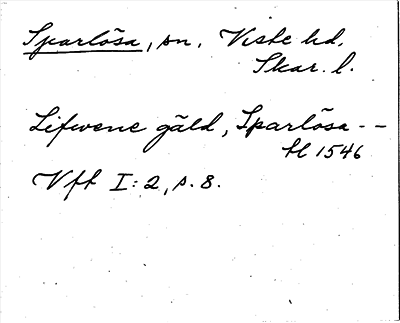 Sparlösa, sn. Viste hd.
Skar. l.
Lifwene gäld, Sparlösa --
hl 1546
Vft I:2, s. 8.